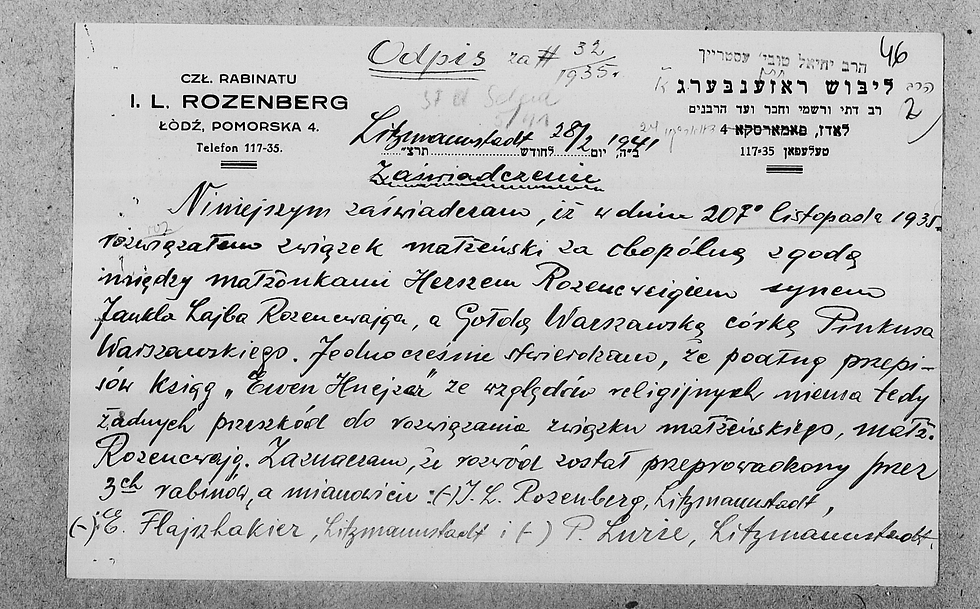 Odpis za # 32/1935.
46
הרב יחיאל טובי' עסטרייך
CZŁ. RABINATU
I. L. ROZENBERG
ŁÓDŹ, POMORSKA 4.
Telefon 117-35.
הרב
ליבוש ראזענבערג
רב דתי ורשמי וחבר ועד הרבנים
לאדז, פאמארסקא 4
טעלעפאן 117-35
2
Litzmannstadt 28/2 1941
ב"ה, יום לחודש תרצ"
Zaświadczenie
Niniejszym zaświadczam, iż w dniu 20go listopada 1935r.
rozwiązałem związek małżeński za obopólną zgodą
między małżonkami Herszem Rozencweigiem synem
Jankla Lajba Rozencwajga, a Gołdą Warszawską córką Pinkusa
Warszawskiego. Jednocześnie stwierdzam, że podług przepi-
sów ksiąg „Ewen Huejzer" ze względów religijnych niema tedy
żadnych przeszkód do rozwiązania związku małżeńskiego, małż.
Rozencwajg. Zaznaczam, że rozwód został przeprowadzony przez
3ch rabinów, a mianowicie: (-) I. L. Rozenberg, Litzmannstadt,
(-) E. Flajszhakier, Litzmannstadt i (-) P. Lurie, Litzmannstadt.